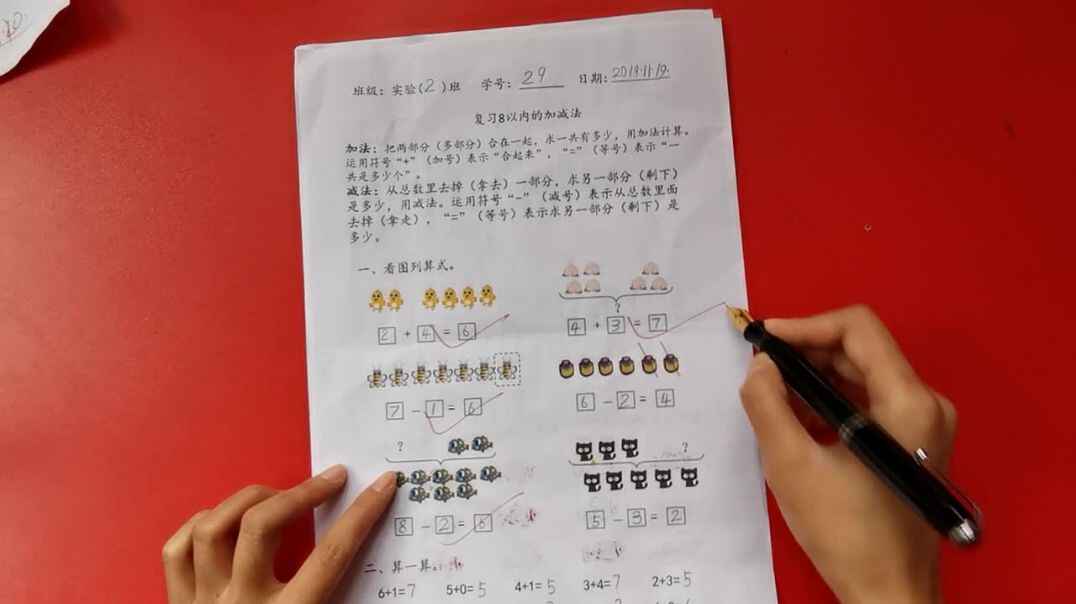 班级：实验(2)班 学号：29 日期：2019.11.19.
复习8以内的加减法
加法：把两部分（多部分）合在一起，求一共有多少，用加法计算。
运用符号“+”（加号）表示“合起来”，“=”（等号）表示“一
共是多少个”。
减法：从总数里去掉（拿去）一部分，求另一部分（剩下）
是多少，用减法。运用符号“-”（减号）表示从总数里面
去掉（拿走），“=”（等号）表示求另一部分（剩下）是
多少。
一、看图列算式。
?
2 + 4 = 6 4 + 3 = 7
7 - 1 = 6 6 - 2 = 4
? ?
8 - 2 = 6 5 - 3 = 2
二、算一算。
6+1=7 5+0=5 4+1=5 3+4=7 2+3=5